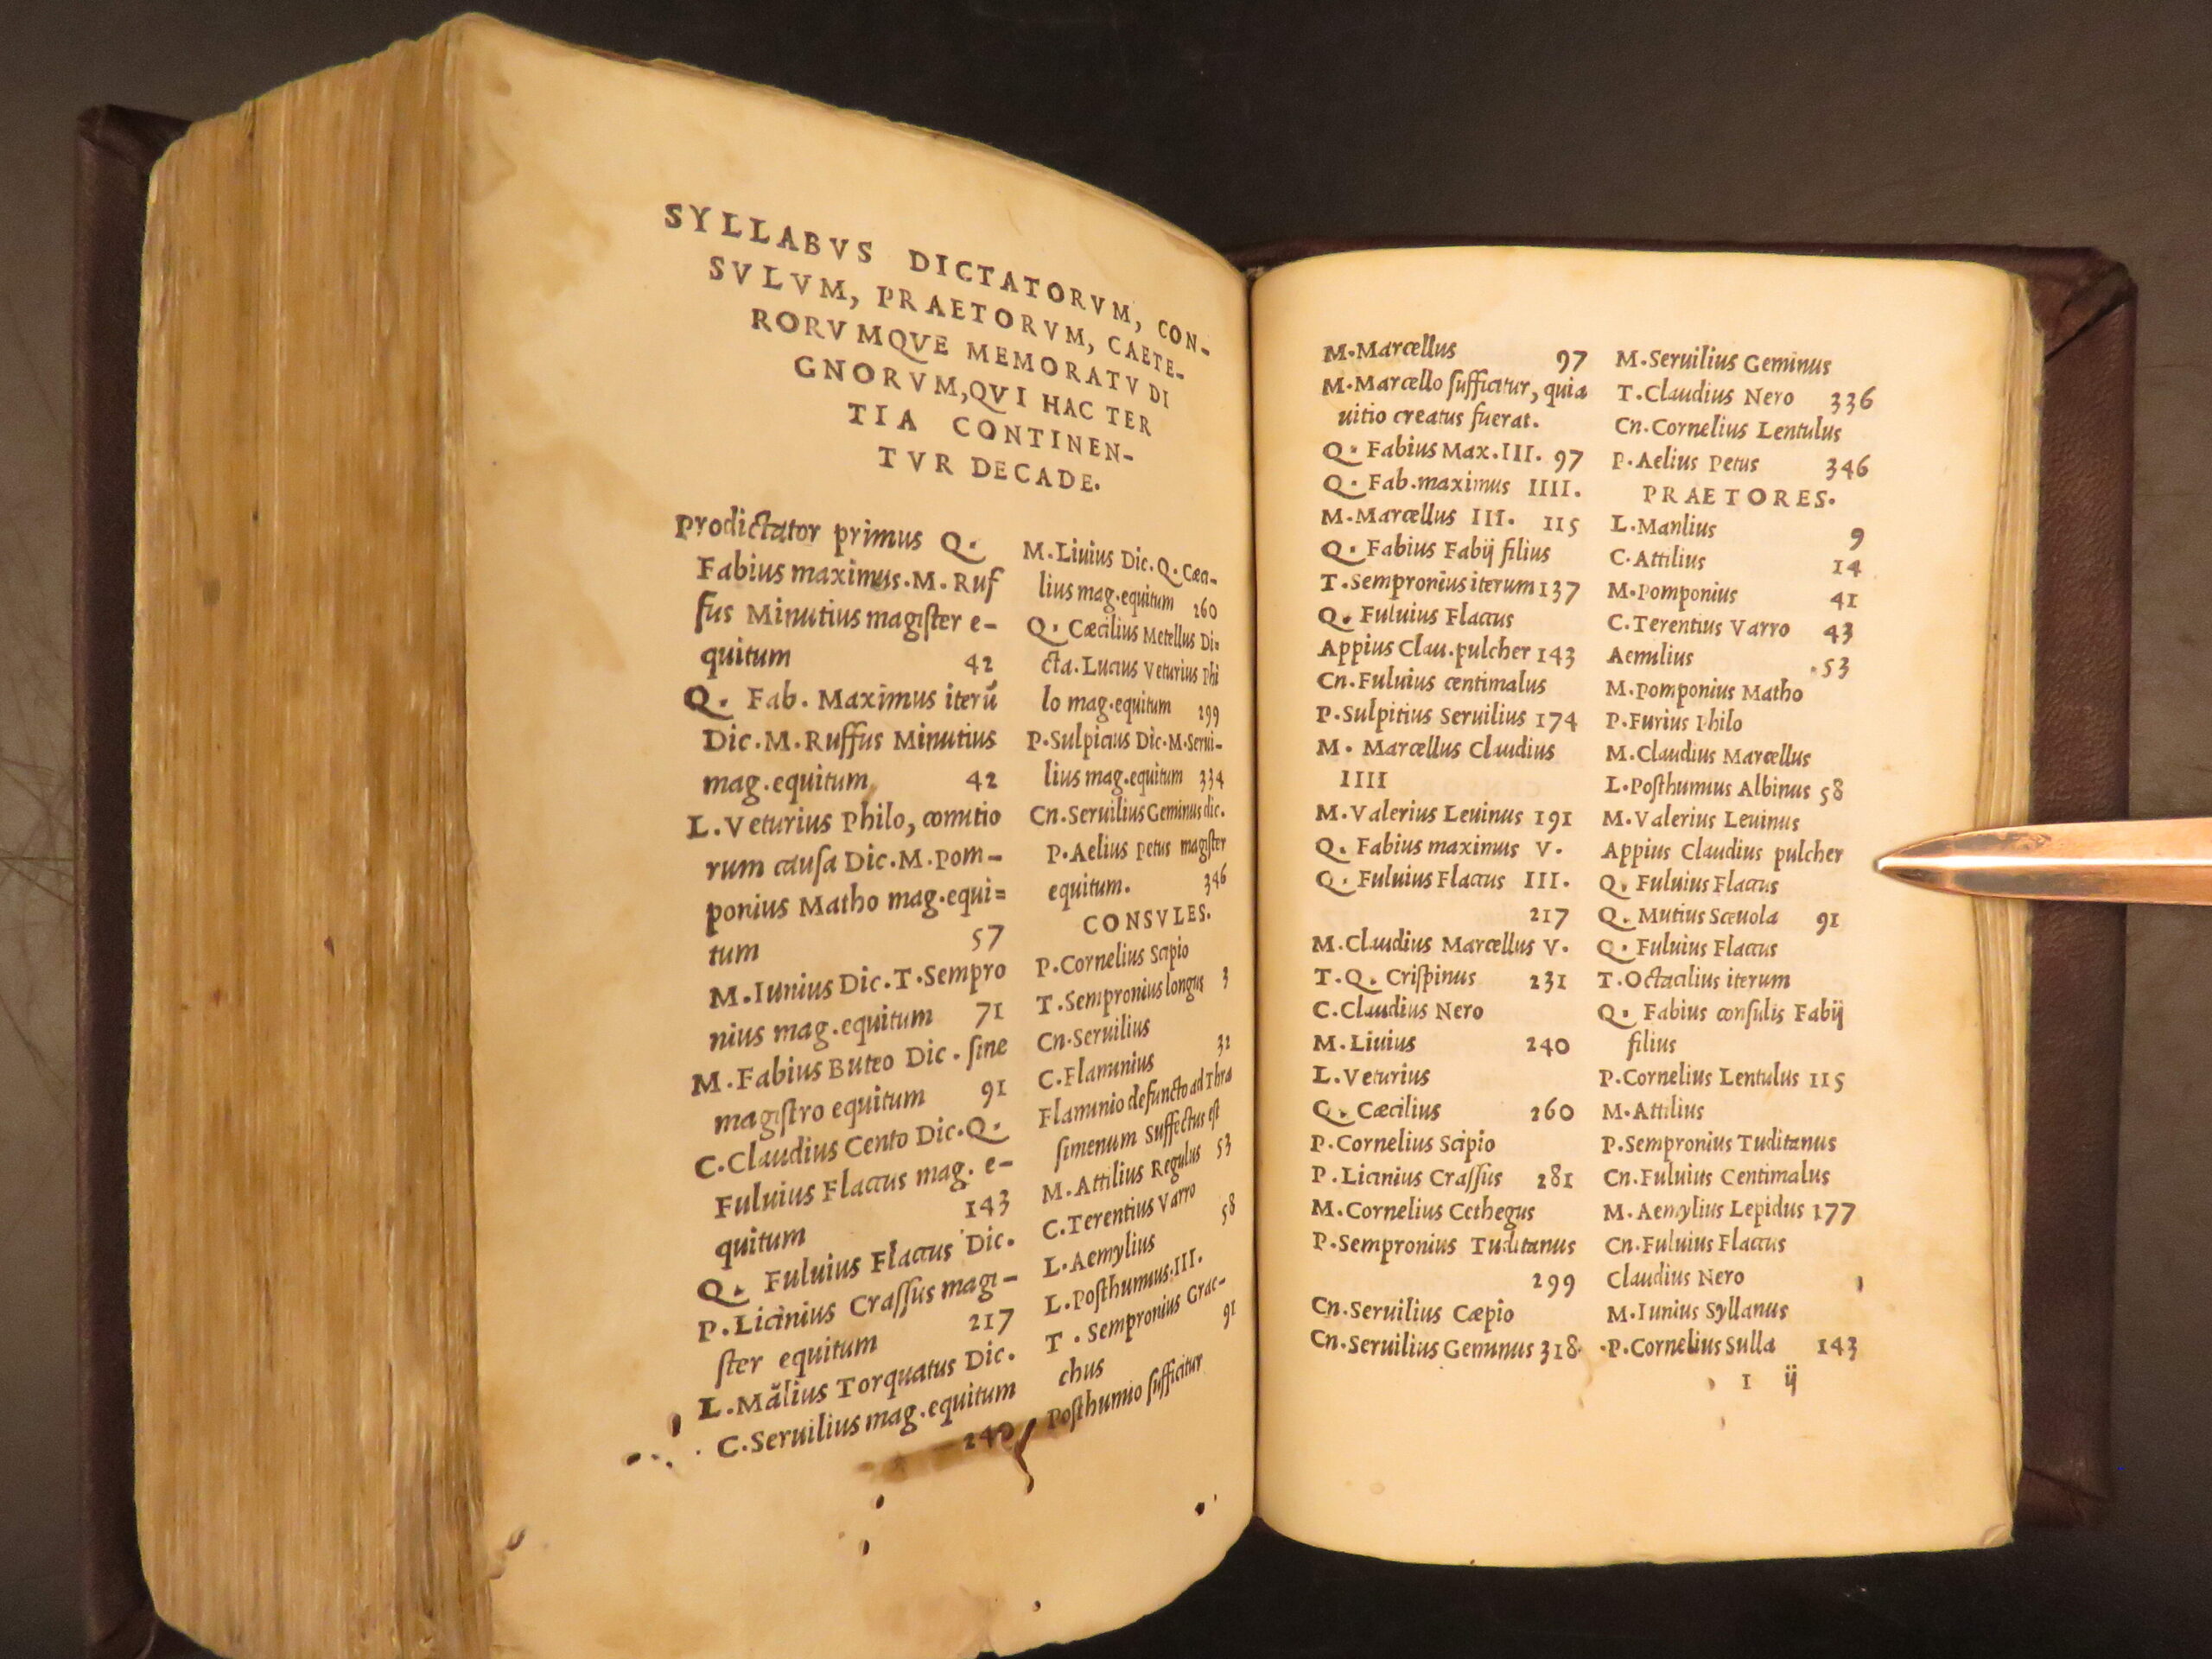 SYLLABVS DICTATORVM, CON-
SVLVM, PRAETORVM, CAETE-
RORVMQVE MEMORATV DI
GNORVM,QVI HAC TER
TIA CONTINEN-
TVR DECADE.
Prodictator primus Q.
Fabius maximus.M. Ruf
fus Minutius magister e-
quitum 42
Q. Fab. Maximus iterū
Dic.M.Ruffus Minutius
mag.equitum 42
L.Veturius Philo, comitio
rum causa Dic.M.Pom-
ponius Matho mag.equi=
tum 57
M.Iunius Dic.T.Sempro
nius mag.equitum 71
M.Fabius Buteo Dic. sine
magistro equitum 91
C.Claudius Cento Dic.Q.
Fuluius Flaccus mag. e-
quitum 143
Q. Fuluius Flaccus Dic.
P.Licinius Crassus magi-
ster equitum 217
L.Mālius Torquatus Dic.
C.Seruilius mag.equitum
240
M.Liuius Dic.Q.Cæci-
lius mag.equitum 260
Q. Cæcilius Metellus Di=
cta.Lucius Veturius Phi
lo mag.equitum 299
P.Sulpicius Dic.M.Serui-
lius mag.equitum 334
Cn.Seruilius Geminus dic.
P.Aelius Petus magister
equitum. 346
CONSVLES.
P.Cornelius Scipio
T.Sempronius longus 3
Cn.Seruilius
C.Flaminius 32
Flaminio defuncto ad Thra
simenum Suffectus est
M.Attilius Regulus 53
C.Terentius Varro
L.Aemylius 58
L.Posthumius.III.
T.Sempronius Grac-
chus 91
Posthumio sufficitur
M.Marcellus 97
M.Marcello sufficitur, quia
uitio creatus fuerat.
Q. Fabius Max.III. 97
Q. Fab.maximus IIII.
M.Marcellus III. 115
Q. Fabius Fabij filius
T.Sempronius iterum 137
Q. Fuluius Flaccus
Appius Clau.pulcher 143
Cn.Fuluius centimalus
P.Sulpitius Seruilius 174
M. Marcellus Claudius
IIII
M.Valerius Leuinus 191
Q. Fabius maximus V.
Q. Fuluius Flaccus III.
217
M.Claudius Marcellus V.
T.Q. Crispinus 231
C.Claudius Nero
M.Liuius 240
L.Veturius
Q. Cæcilius 260
P.Cornelius Scipio
P.Licinius Crassus 281
M.Cornelius Cethegus
P.Sempronius Tuditanus
299
Cn.Seruilius Cæpio
Cn.Seruilius Geminus 318
M.Seruilius Geminus
T.Claudius Nero 336
Cn.Cornelius Lentulus
P.Aelius Petus 346
PRAETORES.
L.Manlius 9
C.Attilius 14
M.Pomponius 41
C.Terentius Varro 43
Aemilius 53
M.Pomponius Matho
P.Furius Philo
M.Claudius Marcellus
L.Posthumius Albinus 58
M.Valerius Leuinus
Appius Claudius pulcher
Q. Fuluius Flaccus
Q. Mutius Scæuola 91
Q. Fuluius Flaccus
T.Octacilius iterum
Q. Fabius consulis Fabij
filius
P.Cornelius Lentulus 115
M.Attilius
P.Sempronius Tuditanus
Cn.Fuluius Centimalus
M.Aemylius Lepidus 177
Cn.Fuluius Flaccus
Claudius Nero
M.Iunius Syllanus
P.Cornelius Sulla 143
I ij